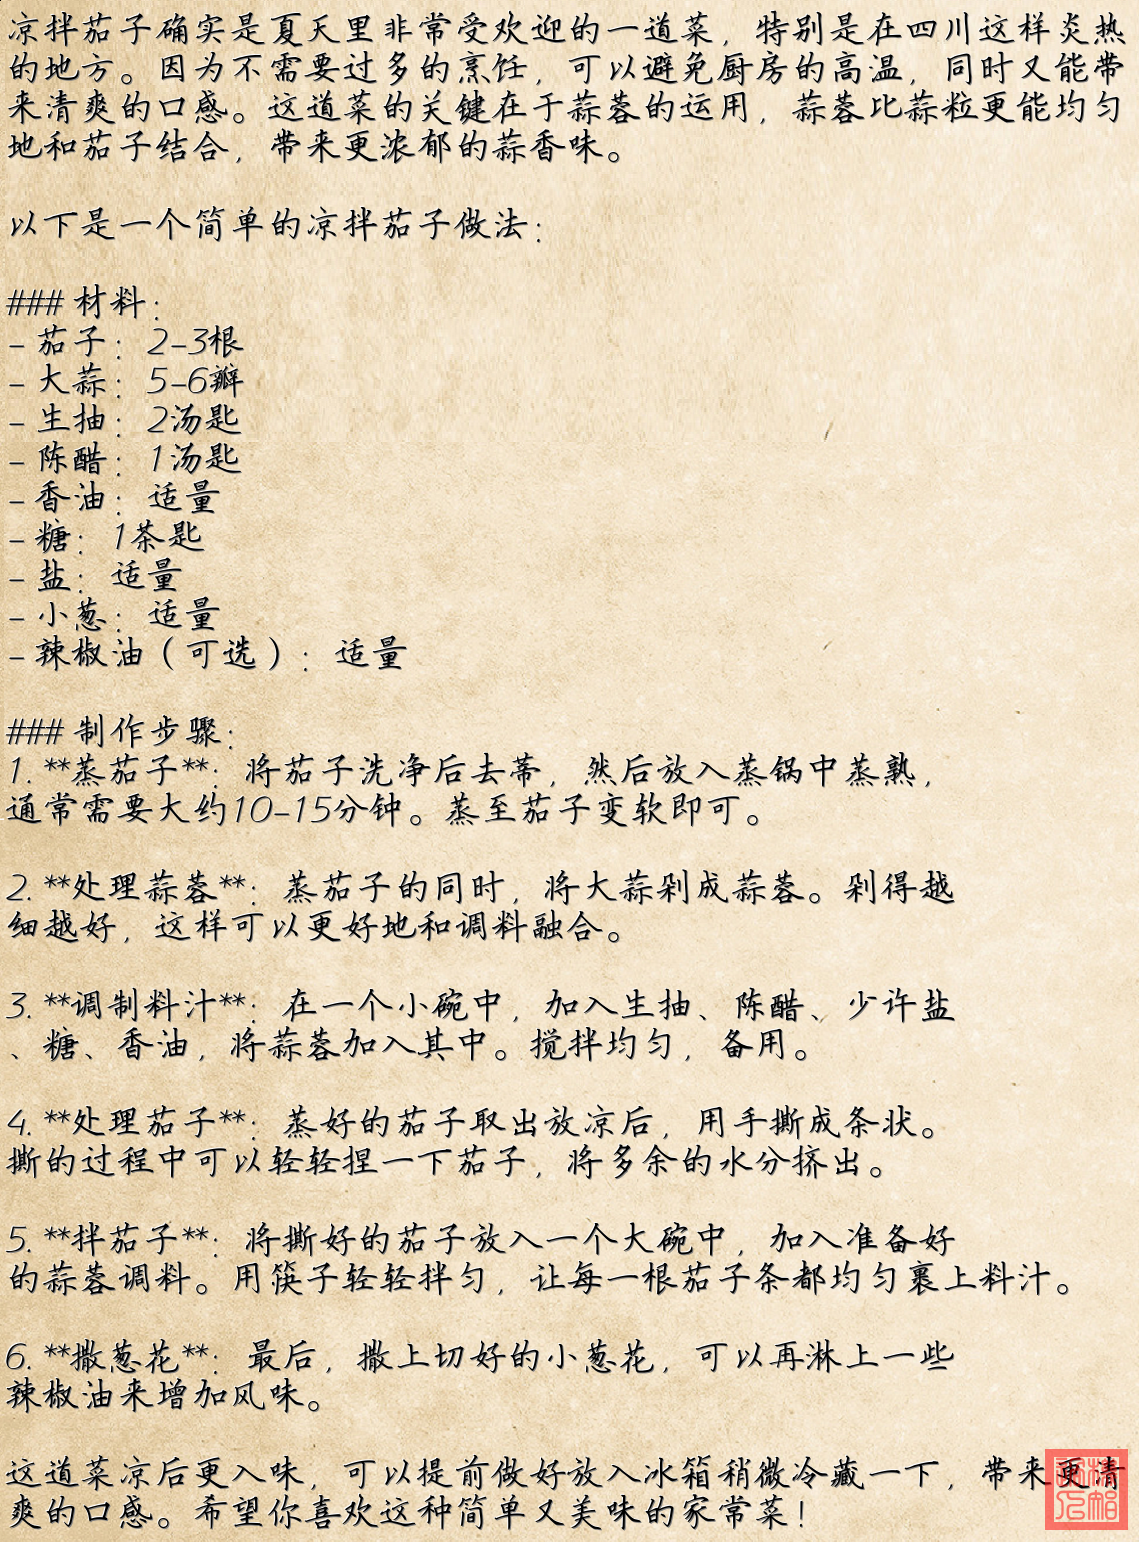 凉拌茄子确实是夏天里非常受欢迎的一道菜，特别是在四川这样炎热
的地方。因为不需要过多的烹饪，可以避免厨房的高温，同时又能带
来清爽的口感。这道菜的关键在于蒜蓉的运用，蒜蓉比蒜粒更能均匀
地和茄子结合，带来更浓郁的蒜香味。
以下是一个简单的凉拌茄子做法：
### 材料：
- 茄子：2-3根
- 大蒜：5-6瓣
- 生抽：2汤匙
- 陈醋：1汤匙
- 香油：适量
- 糖：1茶匙
- 盐：适量
- 小葱：适量
- 辣椒油（可选）：适量
### 制作步骤：
1. **蒸茄子**：将茄子洗净后去蒂，然后放入蒸锅中蒸熟，
通常需要大约10-15分钟。蒸至茄子变软即可。
2. **处理蒜蓉**：蒸茄子的同时，将大蒜剁成蒜蓉。剁得越
细越好，这样可以更好地和调料融合。
3. **调制料汁**：在一个小碗中，加入生抽、陈醋、少许盐
、糖、香油，将蒜蓉加入其中。搅拌均匀，备用。
4. **处理茄子**：蒸好的茄子取出放凉后，用手撕成条状。
撕的过程中可以轻轻捏一下茄子，将多余的水分挤出。
5. **拌茄子**：将撕好的茄子放入一个大碗中，加入准备好
的蒜蓉调料。用筷子轻轻拌匀，让每一根茄子条都均匀裹上料汁。
6. **撒葱花**：最后，撒上切好的小葱花，可以再淋上一些
辣椒油来增加风味。
这道菜凉后更入味，可以提前做好放入冰箱稍微冷藏一下，带来更清
爽的口感。希望你喜欢这种简单又美味的家常菜！